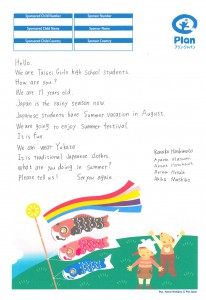 Sponsored Child Number
Sponsor Number
Sponsored Child Name
Sponsor Name
Sponsored Child Country
Sponsor Country
Plan
プラン・ジャパン
Hello.
We are Taisei Girls high School students.
How are you?
We are 17 years old.
Japan is the rainy season now.
Japanese students have Summer vacation in August.
We are going to enjoy Summer festival.
It is fun.
We can wear Yukata.
It is traditional Japanese clothes.
what are you doing in Summer?
Please tell us! See you again.